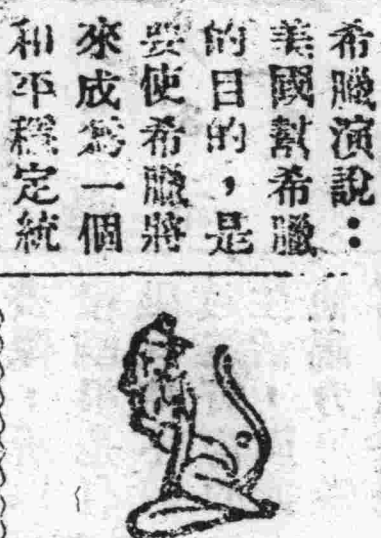 希臘演說：
美國幫希臘
的目的，是
要使希臘將
來成為一個
和平穩定統